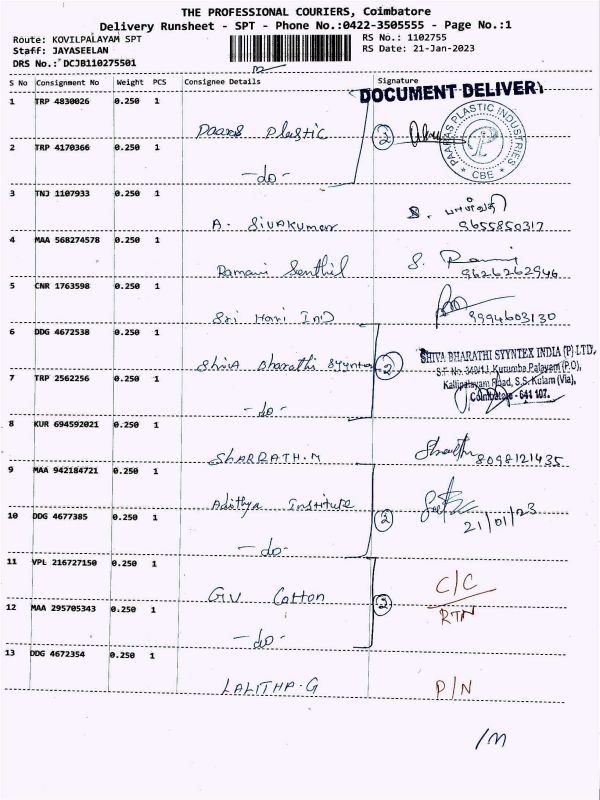 THE PROFESSIONAL COURIERS, Coimbatore
Delivery Runsheet - SPT - Phone No.:0422-3505555 - Page No.:1
Route: KOVILPALAYAM SPT
RS No.: 1102755
Staff: JAYASEELAN
RS Date: 21-Jan-2023
DRS No.: DCJB110275501
S No Consignment No Weight PCS Consignee Details Signature
DOCUMENT DELIVERY
1 TRP 4830026 0.250 1
Paaras Plastic ②
PAARAS PLASTIC INDUSTRIES
CBE
2 TRP 4170366 0.250 1
-do-
3 TNJ 1107933 0.250 1
A. Sivakumar
9655850317
4 MAA 568274578 0.250 1
Ramani Senthil
9626262946
5 CNR 1763598 0.250 1
Sri Hari IND 9994603130
6 DDG 4672538 0.250 1
Shiva Bharathi Styntex ②
SHIVA BHARATHI STYNTEX INDIA (P) LTD.,
S.F. No. 349/1J, Kurumba Palayam (P.O),
Kallipalayam Road, S.S. Kulam (Via),
Coimbatore - 641 107.
7 TRP 2562256 0.250 1
-do-
8 KUR 694592021 0.250 1
SHARRATH.M 8098121435
9 MAA 942184721 0.250 1
Adithya Institute
②
21/01/23
10 DDG 4677385 0.250 1
-do-
11 VPL 216727150 0.250 1
G.V Cotton
② C/C
RTN
12 MAA 295705343 0.250 1
-do-
13 DDG 4672354 0.250 1
LALITHA.G P/N